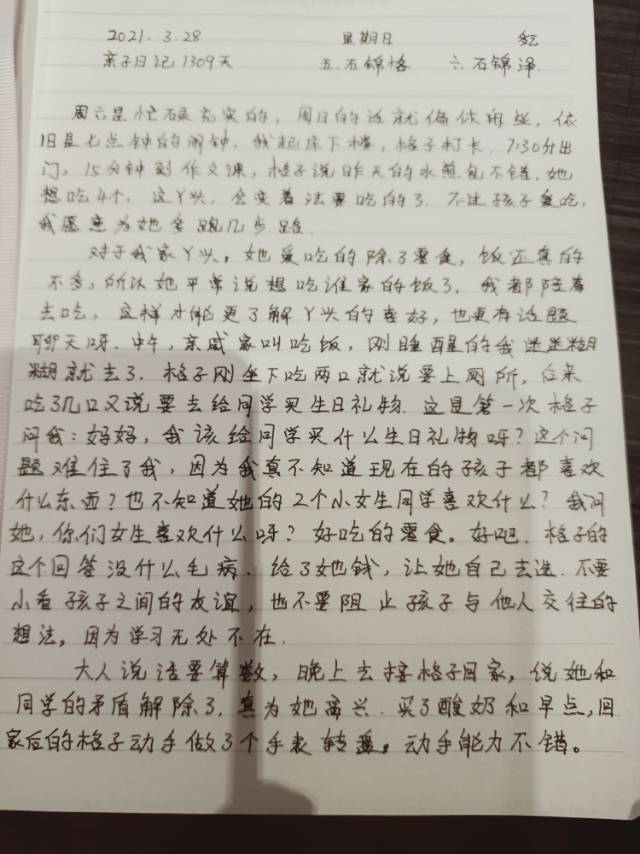 2021.3.28 星期日
亲子日记1309天 五.石锦恪 六.石锦泽.
周六是忙碌充实的，周日的话就偏休闲些，依
旧是七点钟的闹钟，我起床下楼，格子打卡，7:30分出
门，15分钟到作文课，格子说昨天的水煎包不错，她
想吃4个，这丫头，会变着法要吃的了，不过孩子爱吃，
我愿意为她多跑几步路.
对于我家丫头，她爱吃的除了零食，饭还真的
不多，所以她平常说想吃谁家的饭了，我都陪着
去吃，这样才能更了解丫头的喜好，也更有话题
聊天呀.中午，亲戚家叫吃饭，刚睡醒的我迷迷糊
糊就去了.格子刚坐下吃两口就说要上厕所，后来
吃了几口又说要去给同学买生日礼物.这是第一次格子
问我：好好，我该给同学买什么生日礼物呀？这个问
题难住了我，因为我真不知道现在的孩子都喜欢
什么东西？也不知道她的2个小女生同学喜欢什么？我问
她，你们女生喜欢什么呀？好吃的零食。好吧.格子的
这个回答没什么毛病.给了她钱，让她自己去选.不要
小看孩子之间的友谊，也不要阻止孩子与他人交往的
想法，因为学习无处不在.
大人说话要算数，晚上去接格子回家，说她和
同学的矛盾解除了，真为她高兴.买了酸奶和早点，回
家后的格子动手做了个手表转盘，动手能力不错。